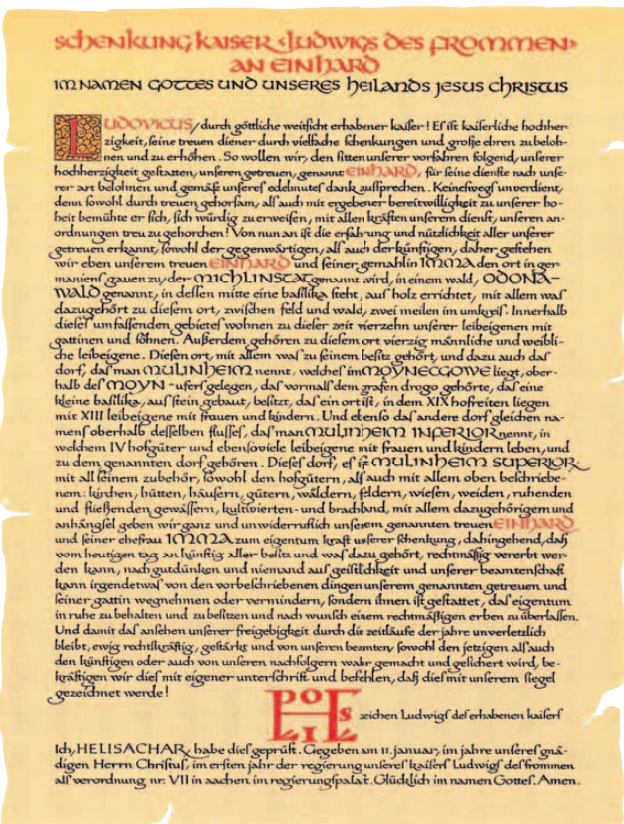 schenkung kaiser ‹ludwigs des frommen›
an einhard
im namen gottes und unseres heilands jesus christus
LUDOVICUS/ durch göttliche weitsicht erhabener kaiser! Eſ iſt kaiſerliche hochher-
zigkeit, ſeine treuen diener durch vielfache ſchenkungen und große ehren zu beloh-
nen und zu erhöhen. So wollen wir, den ſitten unſerer vorfahren folgend, unſerer
hochherzigkeit geſtatten, unſeren getreuen, genannt EINHARD, für ſeine dienſte nach unſe-
rer art belohnen und gemäß unſereſ edelmuteſ dank auſſprechen. Keineſwegſ unverdient,
denn ſowohl durch treuen gehorſam, alſ auch mit ergebener bereitwilligkeit zu unſerer ho-
heit bemühte er ſich, ſich würdig zu erweiſen, mit allen kräften unſerem dienſt, unſeren an-
ordnungen treu zu gehorchen! Von nun an iſt die erfahrung und nützlichkeit aller unſerer
getreuen erkannt, ſowohl der gegenwärtigen, alſ auch der künftigen, daher geſtehen
wir eben unſerem treuen EINHARD und ſeiner gemahlin IMMA den ort in ger
manienſ gauen zu, der MICHLINSTAT genannt wird, in einem wald, ODONA-
WALD genannt, in deſſen mitte eine baſilika ſteht, auſ holz errichtet, mit allem waſ
dazugehört zu dieſem ort, zwiſchen feld und wald, zwei meilen im umkreiſ. Innerhalb
dieſeſ umfaſſenden gebieteſ wohnen zu dieſer zeit vierzehn unſerer leibeigenen mit
gattinen und ſöhnen. Außerdem gehören zu dieſem ort vierzig männliche und weibli-
che leibeigene. Dieſen ort, mit allem waſ zu ſeinem beſitz gehört, und dazu auch daſ
dorf, daſ man MULINHEIM nennt, welcheſ im MOYNECGOWE liegt, ober-
halb deſ MOYN-uferſ gelegen, daſ vormalſ dem grafen drogo gehörte, daſ eine
kleine baſilika, auſ ſtein gebaut, beſitzt, daſ ein ort iſt, in dem XIX hofreiten liegen
mit XIII leibeigene mit frauen und kindern. Und ebenſo daſ andere dorf gleichen na-
menſ oberhalb deſſelben fluſſeſ, daſ man MULINHEIM INFERIOR nennt, in
welchem IV hofgüter und ebenſoviele leibeigene mit frauen und kindern leben, und
zu dem genannten dorf gehören. Dieſeſ dorf, eſ iſt MULINHEIM SUPERIOR,
mit all ſeinem zubehör, ſowohl den hofgütern, alſ auch mit allem oben beſchriebe-
nem: kirchen, hütten, häuſern, gütern, wäldern, feldern, wieſen, weiden, ruhenden
und fließenden gewäſſern, kultivierten- und brachland, mit allem dazugehörigem und
anhängſel geben wir ganz und unwiderruflich unſerem genannten treuen EINHARD
und ſeiner ehefrau IMMA zum eigentum kraft unſerer ſchenkung, dahingehend, daß
vom heutigen tag an künftig aller beſitz und waſ dazu gehört, rechtmäßig vererbt wer-
den kann, nach gutdünken und niemand auſ geiſtlichkeit und unſerer beamtenſchaft
kann irgendetwaſ von den vorbeſchriebenen dingen unſerem genannten getreuen und
ſeiner gattin wegnehmen oder vermindern, ſondern ihnen iſt geſtattet, daſ eigentum
in ruhe zu behalten und zu beſitzen und nach wunſch einem rechtmäßigen erben zu überlaſſen.
Und damit daſ anſehen unſerer freigebigkeit durch die zeitläufe der jahre unverletzlich
bleibt, ewig rechtſkräftig, geſtärkt und von unſeren beamten, ſowohl den jetzigen alſ auch
den künftigen oder auch von unſeren nachfolgern wahr gemacht und geſichert wird, be-
kräftigen wir dieſ mit eigener unterſchrift und befehlen, daß dieſ mit unſerem ſiegel
gezeichnet werde!
zeichen Ludwigſ deſ erhabenen kaiſerſ
Ich, HELISACHAR, habe dieſ geprüft. Gegeben am 11. januar, im jahre unſereſ gnä-
digen Herrn Chriſtuſ, im erſten jahr der regierung unſereſ kaiſerſ Ludwigſ deſ frommen
alſ verordnung nr. VII in aachen im regierungſpalat. Glücklich im namen Gotteſ. Amen.